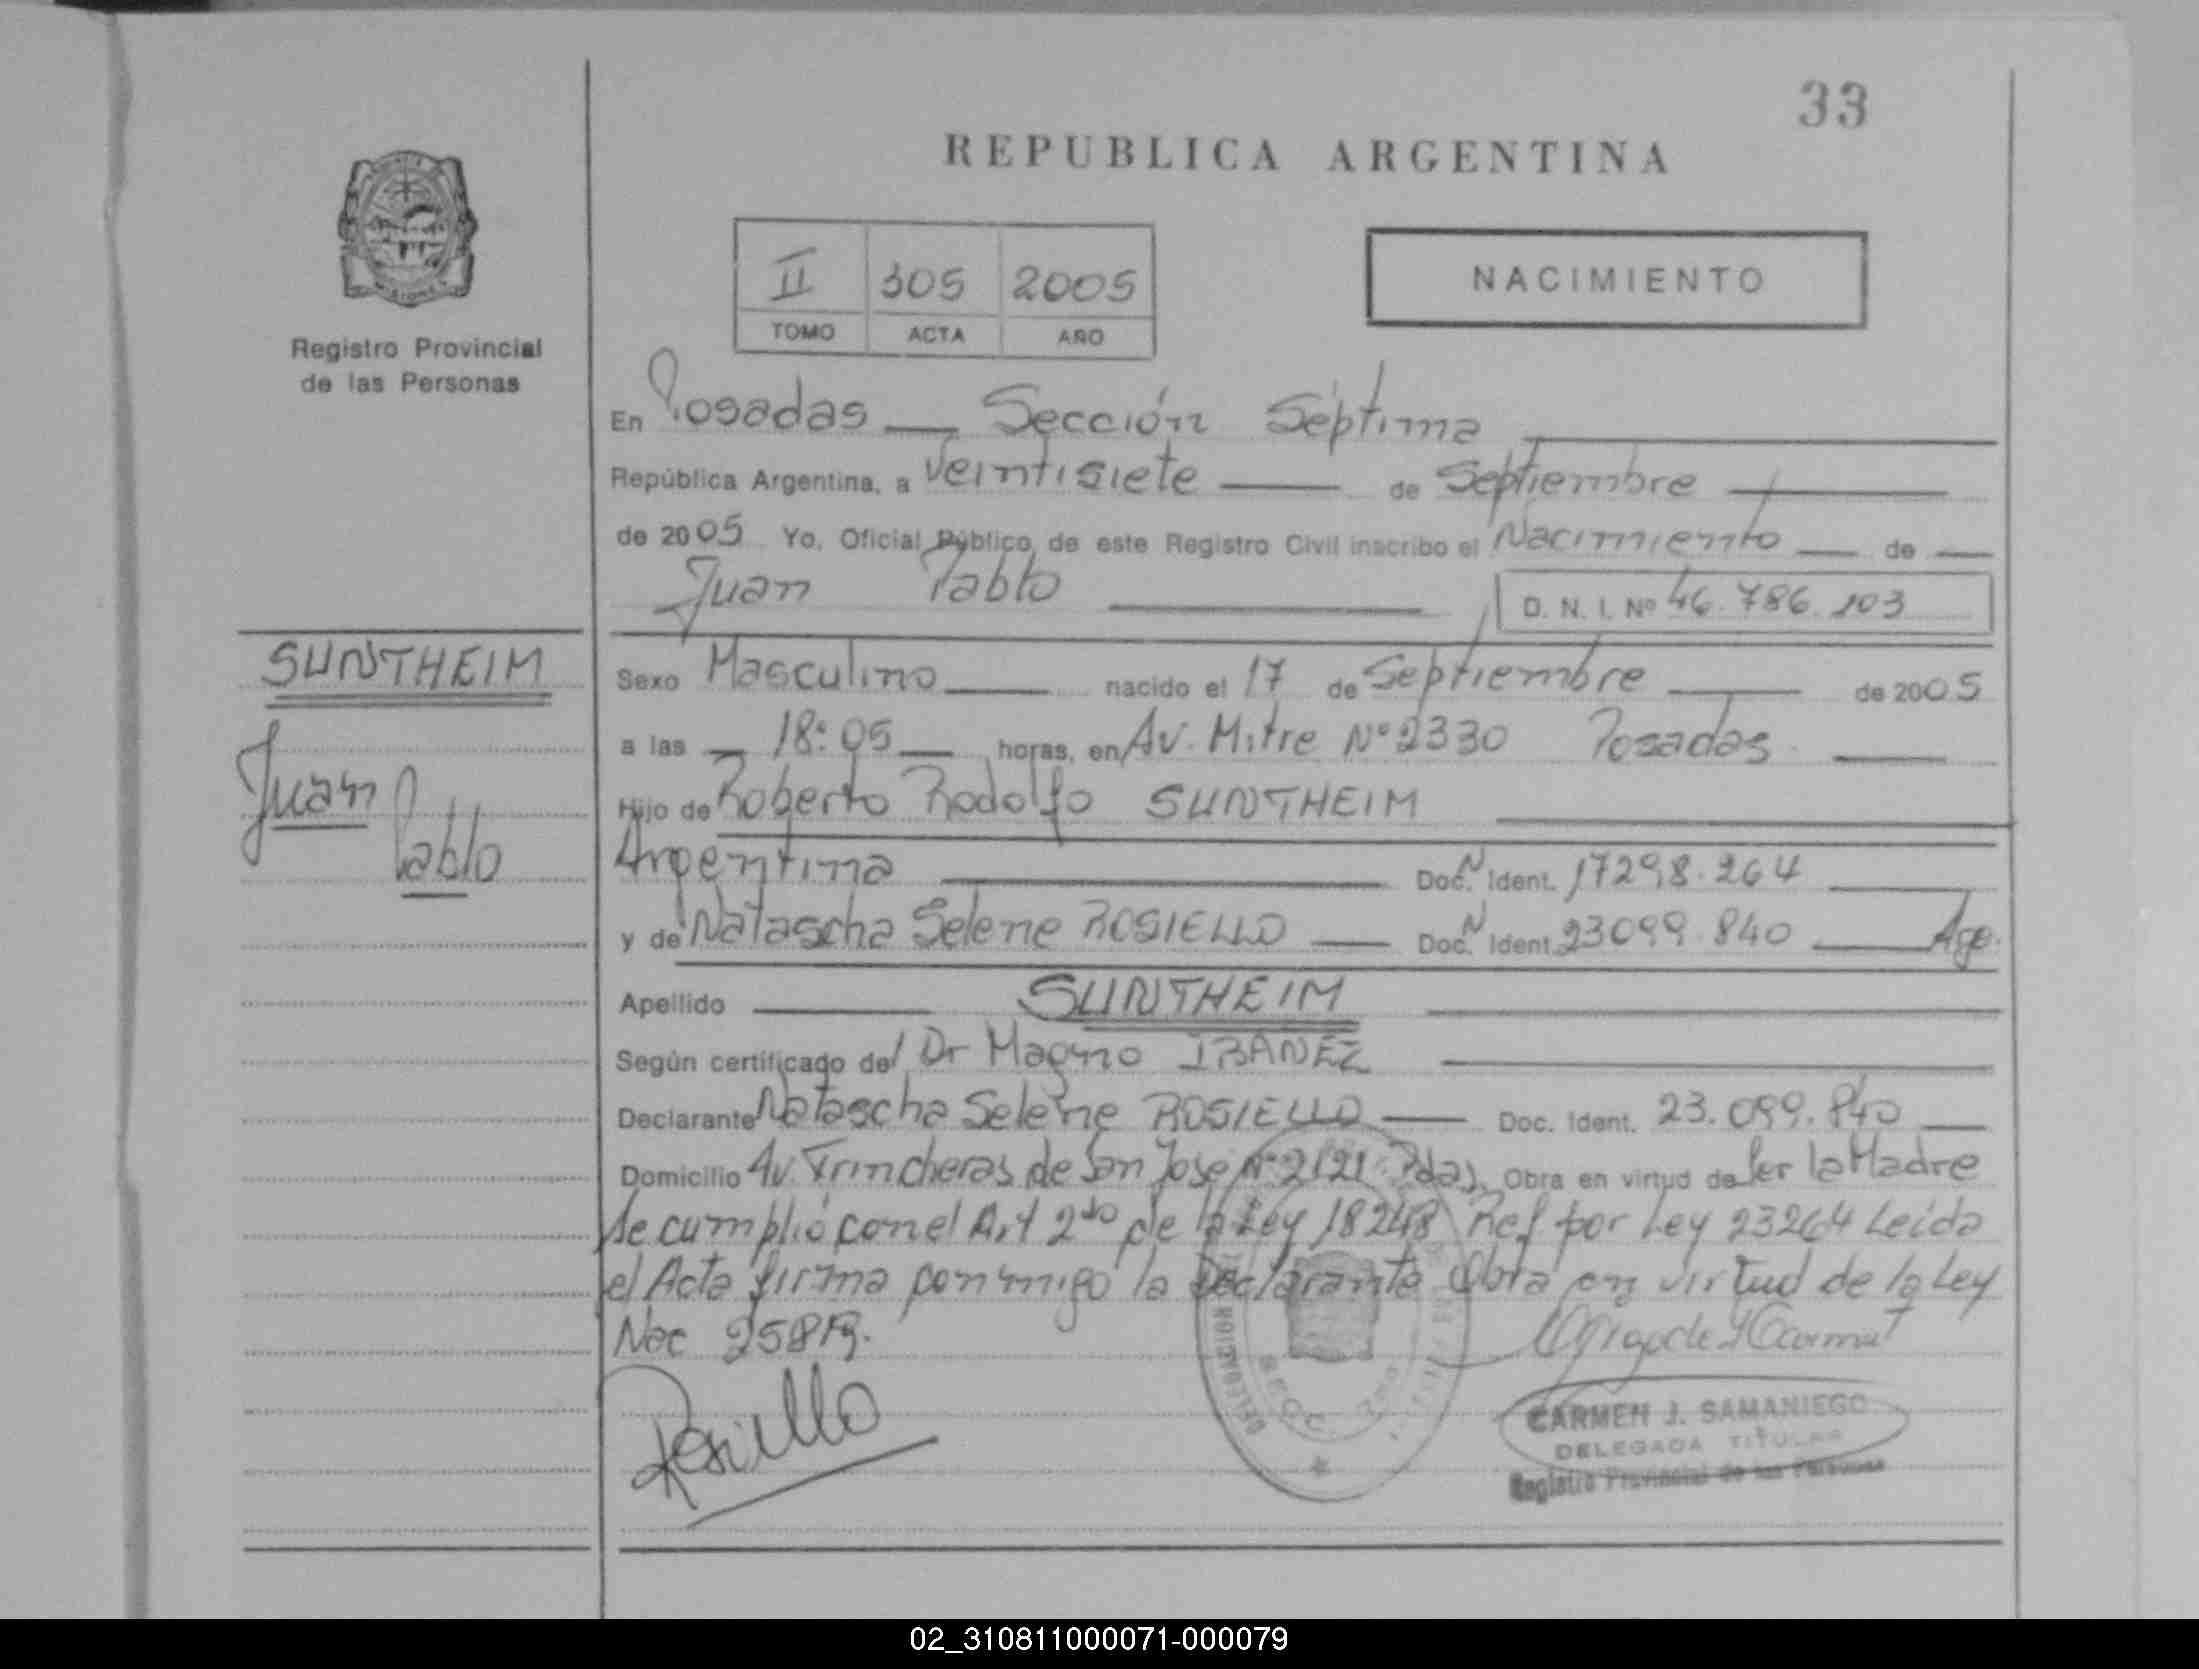 33
REPUBLICA ARGENTINA
II 305 2005
TOMO ACTA AÑO
NACIMIENTO
MISIONES
Registro Provincial
de las Personas
En Posadas — Sección Séptima
República Argentina, a Veintisiete — de Septiembre
de 2005 Yo, Oficial Público de este Registro Civil inscribo el Nacimiento — de —
Juan Pablo — D. N. I. Nº 46.786.103
SUNTHEIM
Juan
Pablo
Sexo Masculino — nacido el 17 de Septiembre — de 2005
a las — 18:05 — horas, en Av. Mitre Nº 2330 Posadas
Hijo de Roberto Rodolfo SUNTHEIM
Argentina — Doc. N Ident. 17298.264
y de Natascha Selene ROSIELLO — Doc. N Ident. 23099.840 — Age.
Apellido — SUNTHEIM
Según certificado del Dr Magno IBAÑEZ
Declarante Natascha Selene ROSIELLO — Doc. Ident. 23.099.840 —
Domicilio Av. Trincheras de San Jose Nº 2121 Pdas. Obra en virtud de Ser la Madre
Se cumplió con el Art 2do de la Ley 18248 Ref por Ley 23264 Leida
el Acta firma conmigo la Declarante Obra en virtud de la Ley
Nac
Rosiello
DELEGACION
SECC.
CARMEN J. SAMANIEGO
DELEGADA TITULAR
Registro Provincial de las Personas
02_310811000071-000079